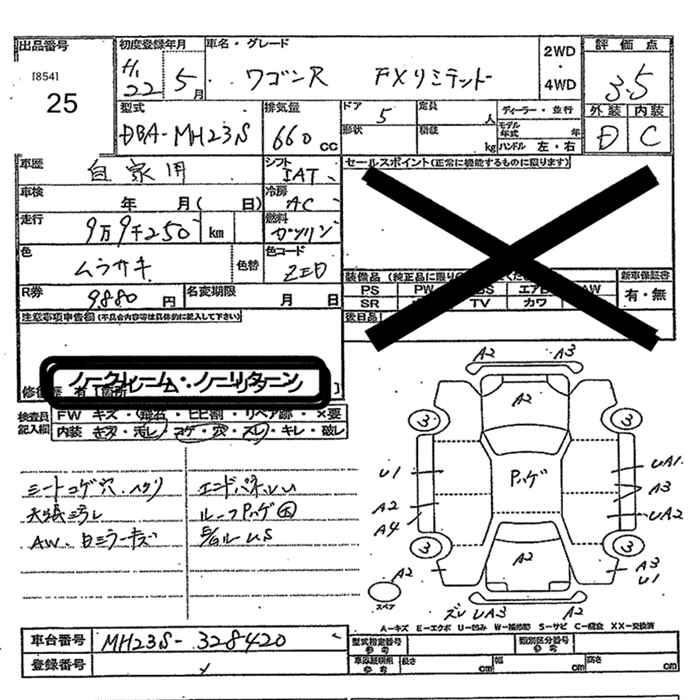 出品番号 初度登録年月 車名・グレード 2WD・4WD 評価点
[854] 25 H.22 5月 ワゴンR FXリミテッド 3.5
型式 排気量 ドア 定員 ディーラー・並行 外装 内装
DBA-MH23S 660cc 5 人 D C
形状 積載 kg モデル年式 年 ハンドル 左・右
車歴 自家用 シフト IAT セールスポイント(正常に機能するものに限ります)
車検 年 月( 日) 冷房 AC
走行 9万9千250 km 燃料 ガソリン
色 ムラサキ 色替 色コード ZED
装備品 新車保証書
PS PW TV カワ AW 有・無
SR
R券 9880円 名変期限 月 日
後日品
注意事項申告欄(不具合内容等は具体的に記入して下さい)
ノークレーム・ノーリターン
修復歴 有 [箇所 ]
検査員記入欄 FW キズ・飛石・ヒビ割・リペア跡・×要
内装 キズ・汚レ・コゲ・穴・スレ・キレ・破レ
シートコゲ穴、ヘタリ
天張ミラレ
ルーフハゲ
A2 A3
A2
3 3
U1 ハゲ UA1
A2 A3
A4 UA2
3 3
A2 A3
A2 U1
スペア ズレ UA3 A2
A-キズ E-エクボ U-凹み W-補修跡 S-サビ C-腐食 XX-交換済
車台番号 MH23S-328420 型式指定番号 参考 類別区分番号 参考
登録番号 車庫証明用 参考 長さ cm 幅 cm 高さ cm